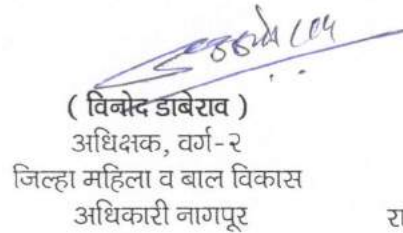 ( विनोद डाबेराव )
अधिक्षक, वर्ग-२
जिल्हा महिला व बाल विकास
अधिकारी नागपूर
रा